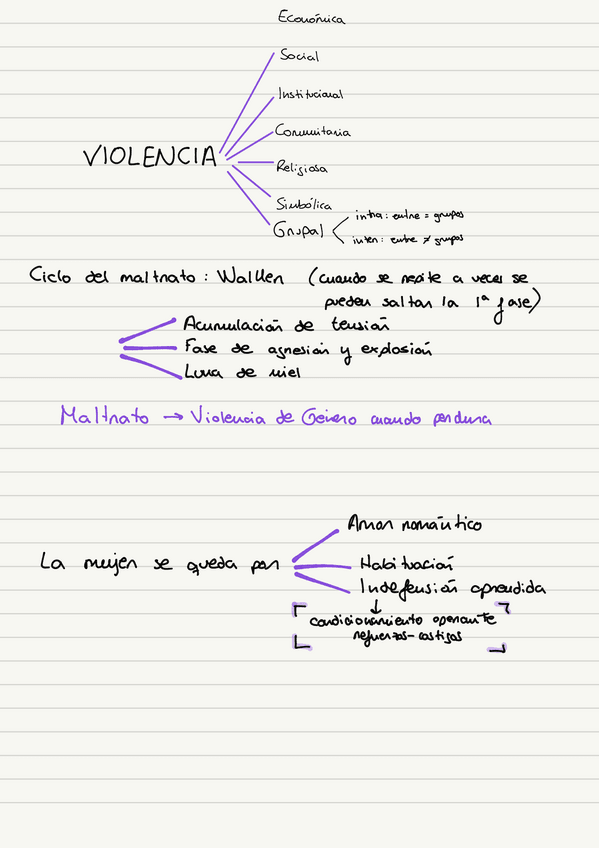 Económica
Social
Institucional
Comunitaria
VIOLENCIA
Religiosa
Simbólica
Grupal
intra: entre = grupos
inter: entre ≠ grupos
Ciclo del maltrato: Walker (cuando se repite a veces se
pueden saltar la 1ª fase)
Acumulación de tensión
Fase de agresión y explosión
Luna de miel
Maltrato → Violencia de Género cuando perdura
Amor romántico
La mujer se queda por
Habituación
Indefensión aprendida
↓
condicionamiento operante
refuerzos-castigos